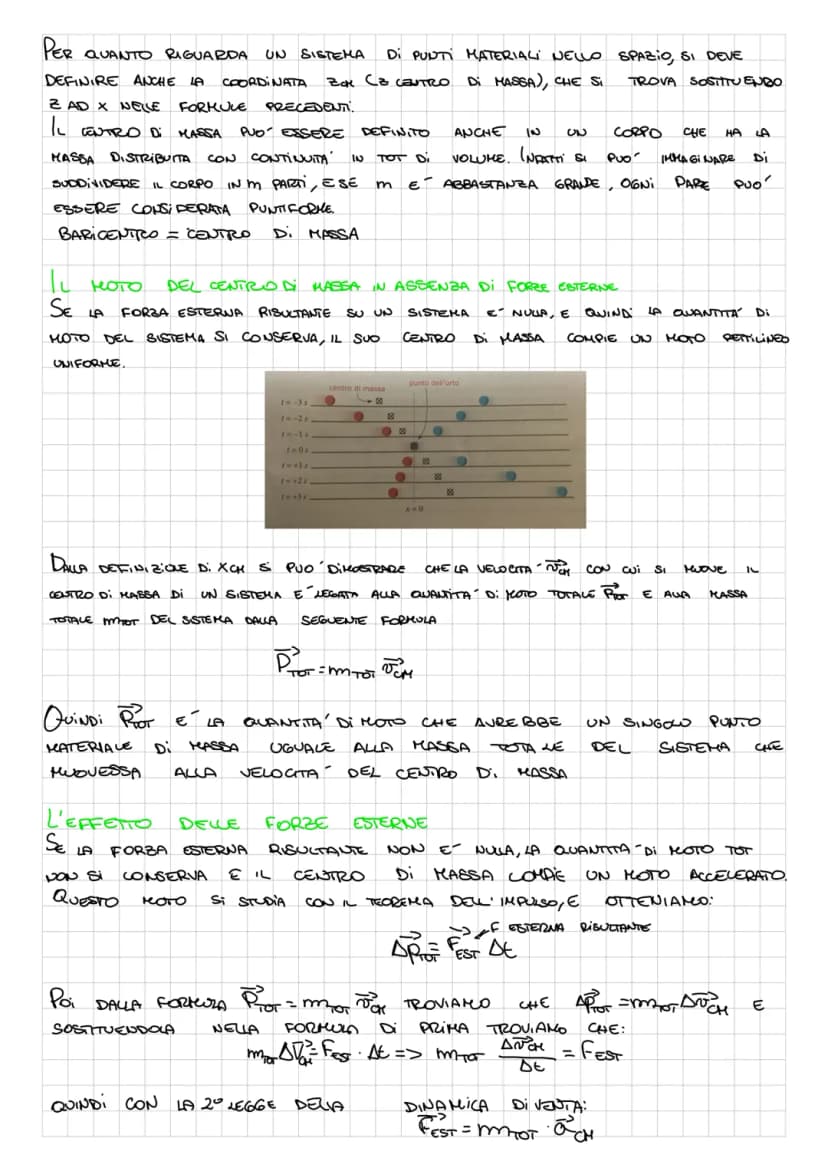 PER QUANTO RIGUARDA UN SISTEMA Di PUNTI MATERIALI NELLO SPAZIO, SI DEVE
DEFINIRE ANCHE LA COORDINATA ZCM (Z CENTRO Di MASSA), CHE Si TROVA SOSTITUENDO
Z AD X NELLE FORMULE PRECEDENTI.
IL CENTRO Di MASSA PUO' ESSERE DEFINITO ANCHE IN UN CORPO CHE HA LA
MASSA DISTRIBUITA CON CONTINUITA' IN TOT Di VOLUME. INFATTI SI PUO' IMMAGINARE Di
SUDDIVIDERE IL CORPO IN m PARTI, E SE m E' ABBASTANZA GRANDE, OGNI PARE PUO'
ESSERE CONSIDERATA PUNTIFORME.
BARICENTRO = CENTRO Di MASSA
IL MOTO DEL CENTRO Di MASSA IN ASSENZA Di FORZE ESTERNE
SE LA FORZA ESTERNA RISULTANTE SU UN SISTEMA E' NULLA, E QUINDI LA QUANTITA' Di
MOTO DEL SISTEMA SI CONSERVA, IL SUO CENTRO Di MASSA COMPIE UN MOTO RETTILINEO
UNIFORME.
centro di massa punto dell'urto
t = -3 s
t = -2 s
t = -1 s
t = 0 s
t = +1 s
t = +2 s
t = +3 s
x = 0
DALLA DEFINIZIONE Di XCM Si PUO' DIMOSTRARE CHE LA VELOCITA' v⃗CM CON CUI SI MUOVE IL
CENTRO Di MASSA Di UN SISTEMA E' LEGATA ALLA QUANTITA' Di MOTO TOTALE P⃗TOT E ALLA MASSA
TOTALE mTOT DEL SISTEMA DALLA SEGUENTE FORMULA
P⃗TOT = mTOT v⃗CM
QUINDI P⃗TOT E' LA QUANTITA' Di MOTO CHE AVREBBE UN SINGOLO PUNTO
MATERIALE Di MASSA UGUALE ALLA MASSA TOTALE DEL SISTEMA CHE
MUOVESSA ALLA VELOCITA' DEL CENTRO Di MASSA
L'EFFETTO DELLE FORZE ESTERNE
SE LA FORZA ESTERNA RISULTANTE NON E' NULLA, LA QUANTITA' Di MOTO TOT
NON SI CONSERVA E IL CENTRO Di MASSA COMPIE UN MOTO ACCELERATO.
QUESTO MOTO Si STUDIA CON IL TEOREMA DELL'IMPULSO, E OTTENIAMO:
F ESTERNA RISULTANTE
ΔP⃗TOT = F⃗EST Δt
POi DALLA FORMULA P⃗TOT = mTOT v⃗CM TROVIAMO CHE ΔP⃗TOT = mTOT Δv⃗CM E
SOSTITUENDOLA NELLA FORMULA Di PRIMA TROVIAMO CHE:
mTOT Δv⃗CM = F⃗EST · Δt => mTOT Δv⃗CM / Δt = FEST
QUINDI CON LA 2° LEGGE DELLA DINAMICA DiVENTA:
F⃗EST = mTOT · a⃗CM